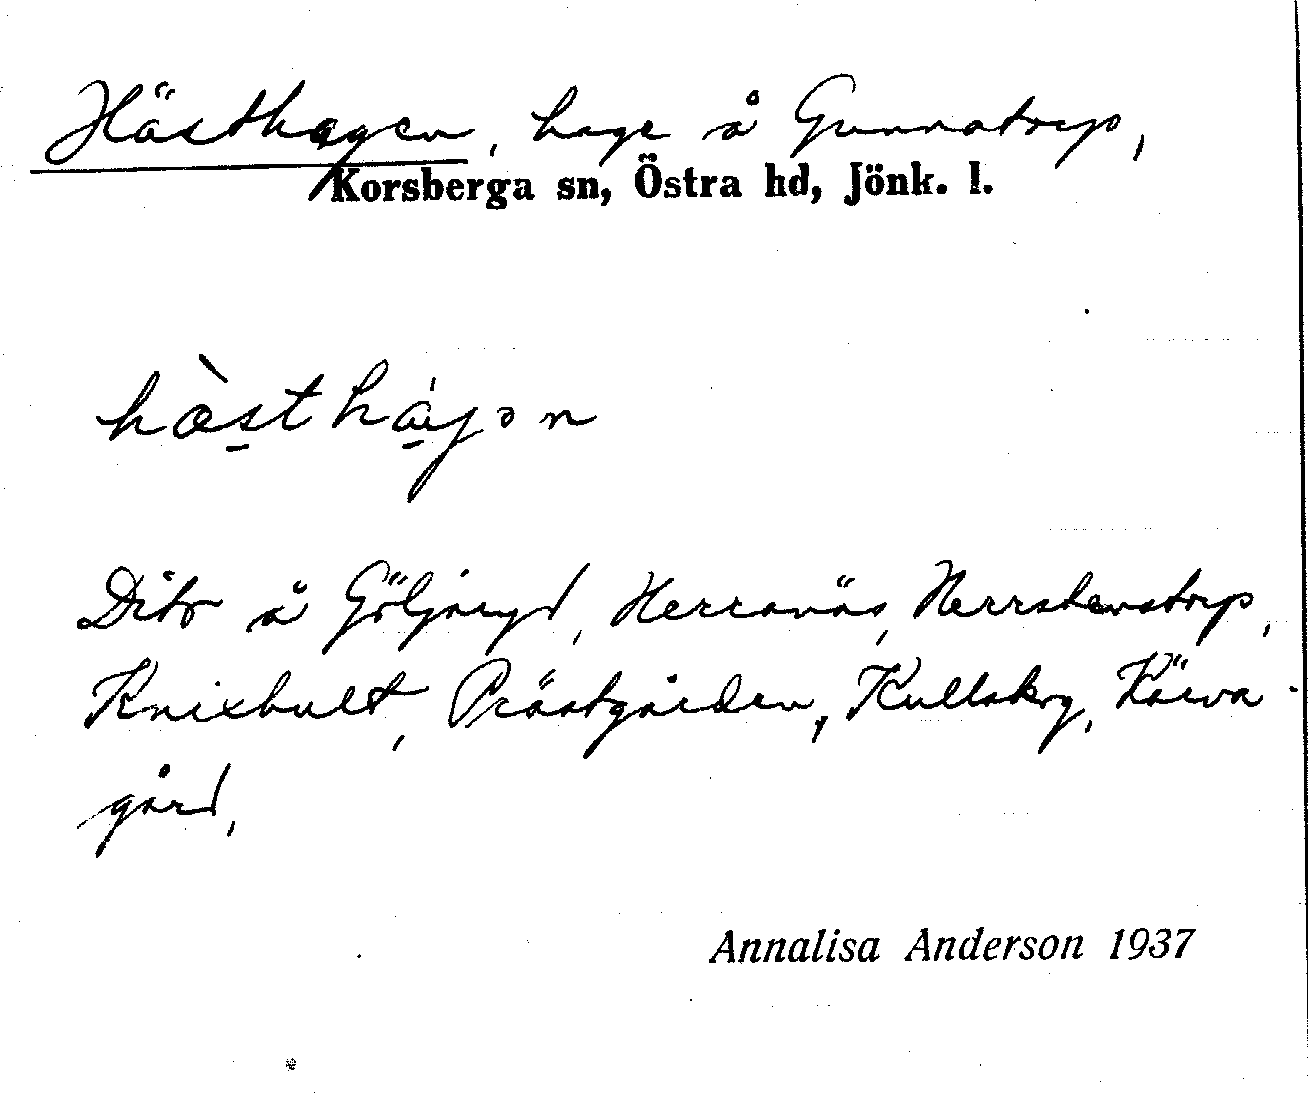 Hästhagen, hage å Gunnatorp,
Korsberga sn, Östra hd, Jönk. l.
hæ̀sthágən
Dito å Göljaryd, Herranäs, Herrstenstorp,
Knixhult, Prästgården, Kullskog, Kärva-
gård,
Annalisa Anderson 1937